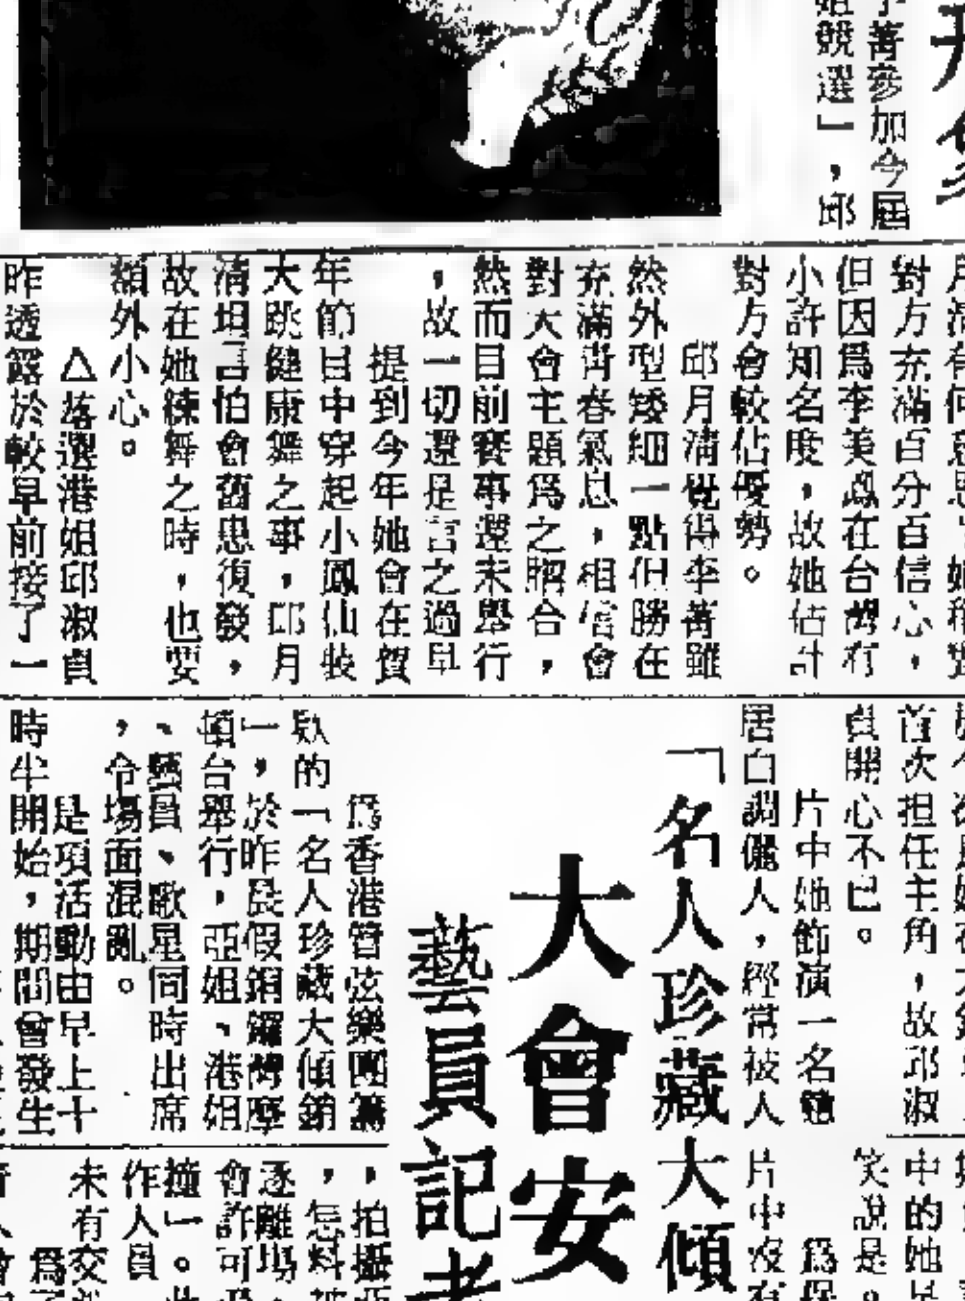 菁參加今屆
姐競選」，邱
對方充滿百分百信心，
但因爲李美鳳在台灣有
小許知名度，故她估計
對方會較佔優勢。
邱月清覺得李菁雖
然外型矮細一點但勝在
充滿靑春氣息，相信會
對大會主題爲之脗合，
然而目前賽事還未舉行
，故一切還是言之過早
提到今年她會在賀
年節目中穿起小鳳仙裝
大跳健康舞之事，邱月
清坦言怕會舊患復發，
故在她練舞之時，也要
額外小心。
△落選港姐邱淑貞
昨透露於較早前接了一
首次担任主角，故邱淑
貞開心不已。
片中她飾演一名
居白調儷人，經常被人
「名人珍藏大傾
大會安
藝員記者
爲香港管弦樂團籌
欵的「名人珍藏大傾銷
一，於昨晨假銅鑼灣摩
頓台舉行，亞姐、港姐
、藝員、歌星同時出席
，令場面混亂。
是項活動由早上十
時半開始，期間會發生
中的她
笑說是。
片中沒有
，拍攝
，怎料被
逐離場
會許可
撞」。
作人員
未有交
爲